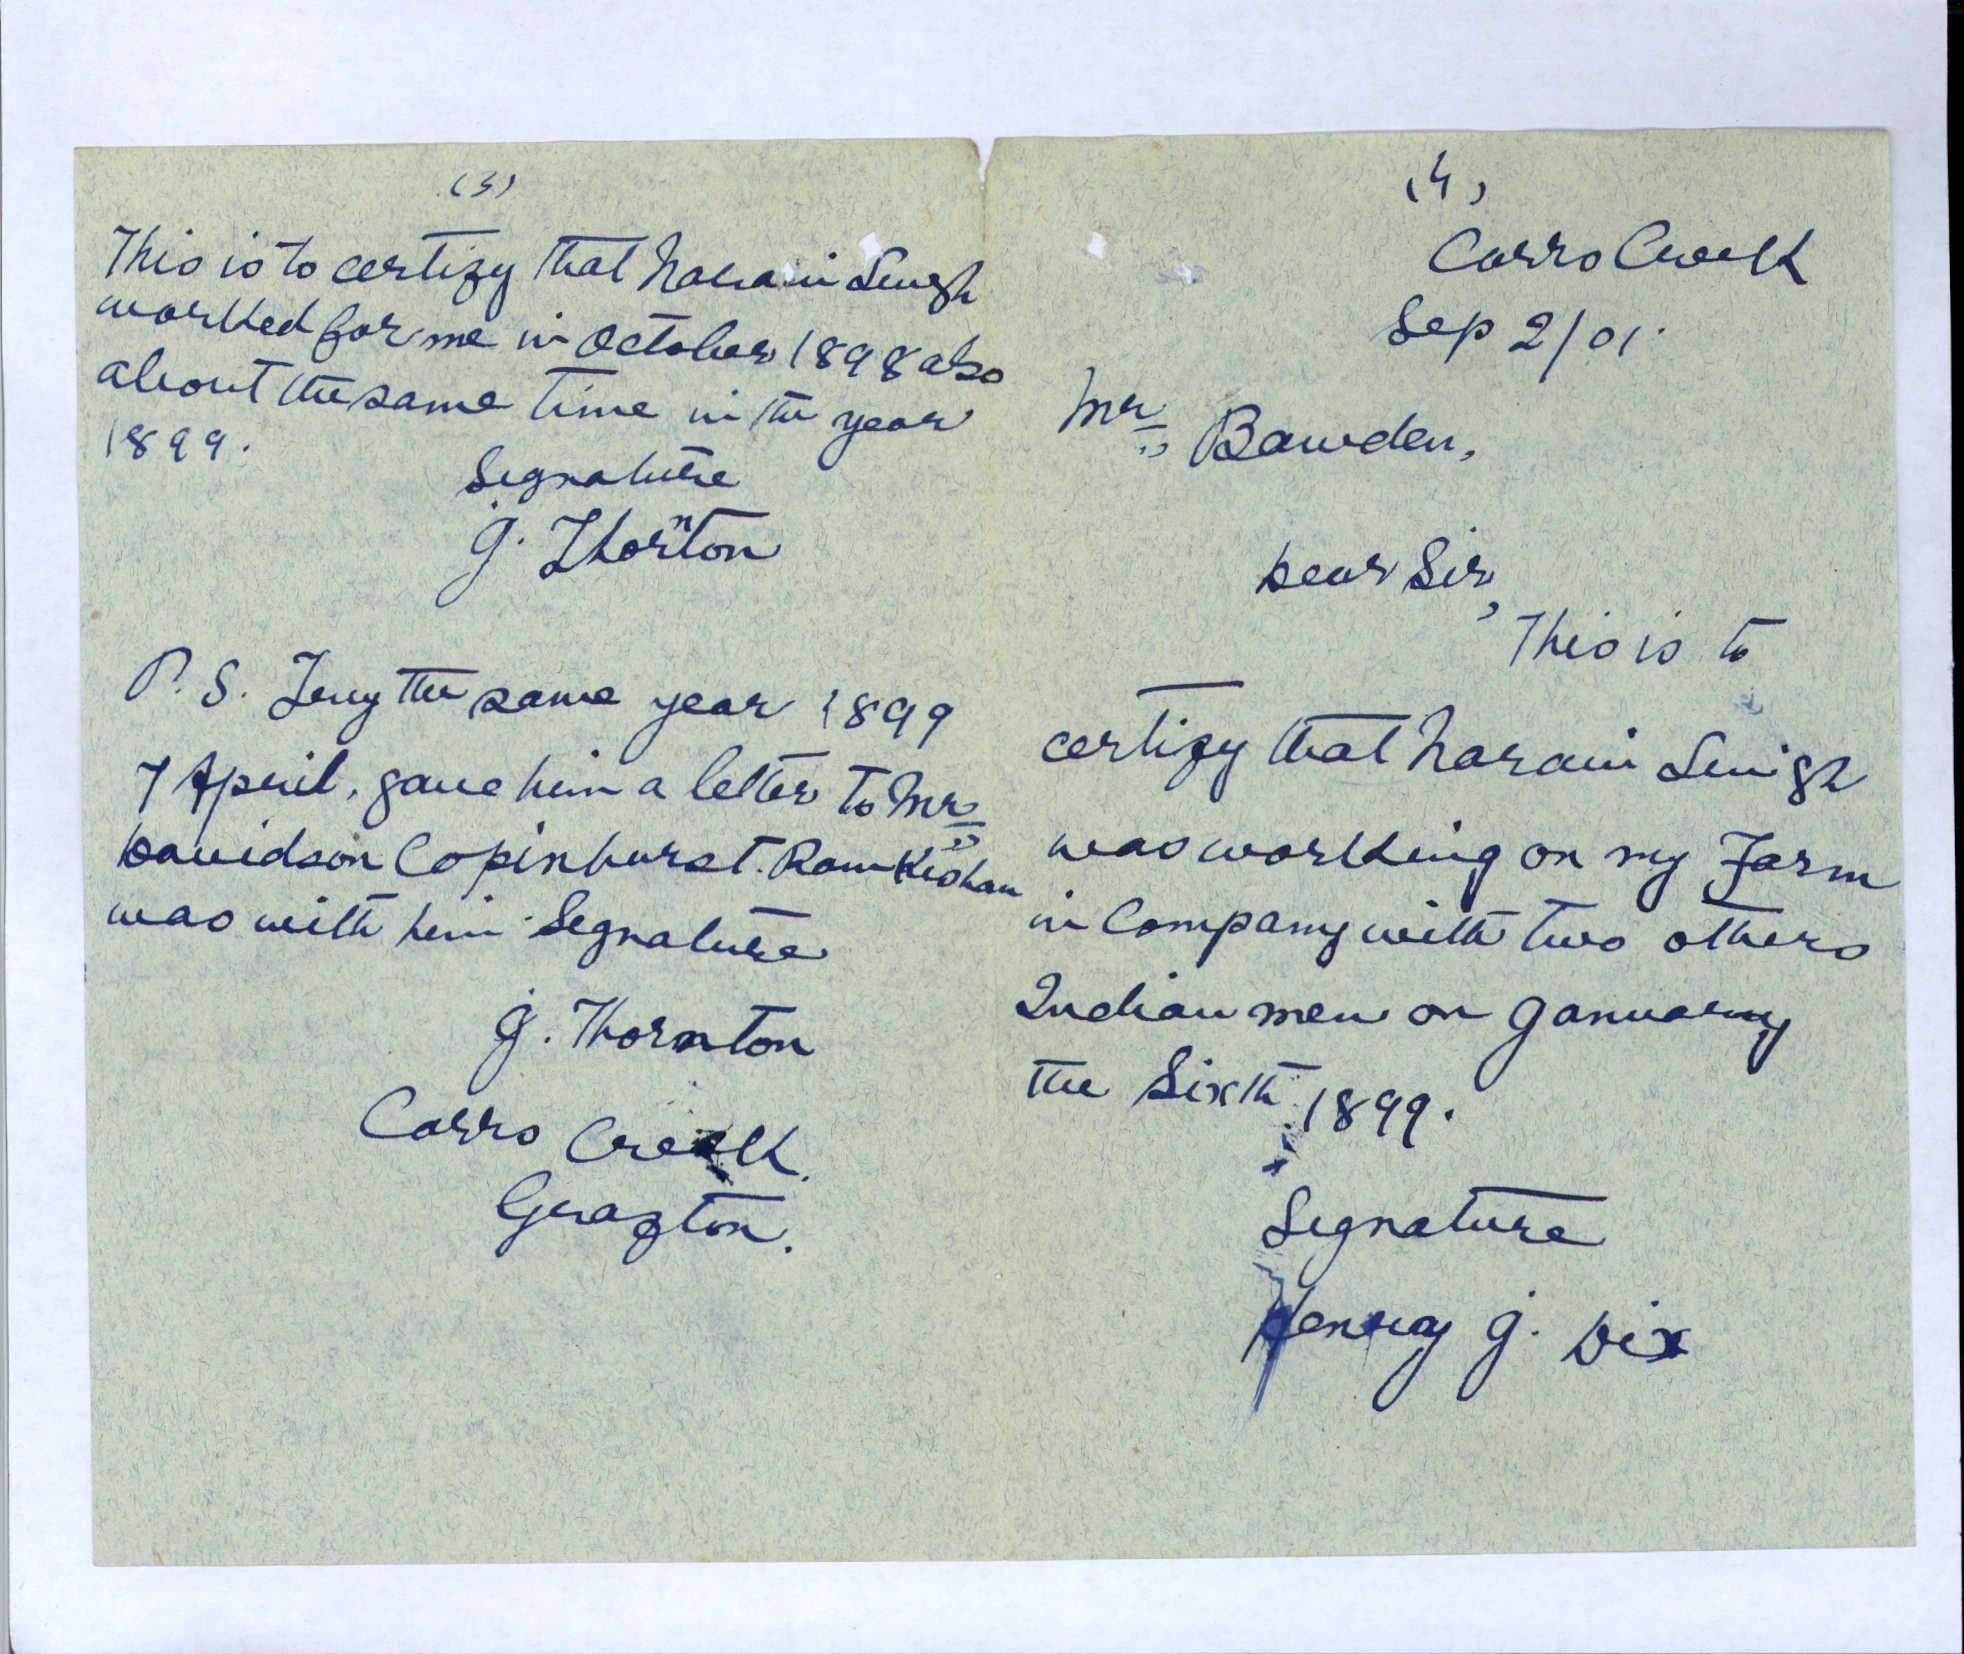 (3)
This is to certify that Narain Singh
worked for me in October 1898 also
about the same time in the year
1899.
Signature
J. Thornton
P. S. the same year 1899
7 April, gave him a letter to Mr
Davidson Copinhurst. Ram Kishan
was with him Signature
J. Thornton
Carrs Creek.
Grafton.
(4)
Carrs Creek
Sep 2/01.
Mr Bawden,
Dear Sir,
This is to
certify that Narain Singh
was working on my Farm
in Company with two others
Indian men on January
the Sixth 1899.
Signature
Henry J. Dix